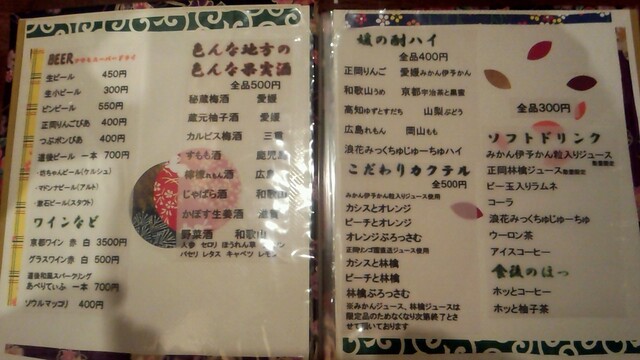 BEER アサヒスーパードライ
生ビール 450円
生小ビール 300円
ビンビール 550円
正岡りんごびあ 400円
つぶポンびあ 400円
道後ビール 一本 700円
・坊ちゃんビール(ケルシュ)
・マドンナビール(アルト)
・漱石ビール(スタウト)
ワインなど
京都ワイン 赤 白 3500円
グラスワイン 赤 白 500円
道後和風スパークリング
あぺりてぃふ 一本 700円
ソウルマッコリ 400円
色んな地方の
色んな果実酒
全品500円
秘蔵梅酒 愛媛
蔵元柚子酒 愛媛
カルピス梅酒 三重
すもも酒 鹿児島
檸檬れもん酒 広島
じゃばら酒 和歌山
かぼす生姜酒 滋賀
野菜酒 和歌山
人参 セロリ ほうれん草
パセリ レタス キャベツ レモン
媛の酎ハイ
全品400円
正岡りんご 愛媛みかん伊予かん
和歌山うめ 京都宇治茶と黒蜜
高知ゆずとすだち 山梨ぶどう
広島れもん 岡山もも
浪花みっくちゅじゅーちゅハイ
こだわりカクテル
全500円
みかん伊予かん粒入りジュース使用
カシスとオレンジ
ピーチとオレンジ
オレンジぶろっさむ
正岡りんご園直送ジュース使用
カシスと林檎
ピーチと林檎
林檎ぶろっさむ
※みかんジュース、林檎ジュースは
限定品のためなくなり次第終了とさ
せて頂いております
全品300円
ソフトドリンク
みかん伊予かん粒入りジュース数量限定
正岡林檎ジュース数量限定
ビー玉入りラムネ
コーラ
浪花みっくちゅじゅーちゅ
ウーロン茶
アイスコーヒー
食後のほっ
ホッとコーヒー
ホッと柚子茶